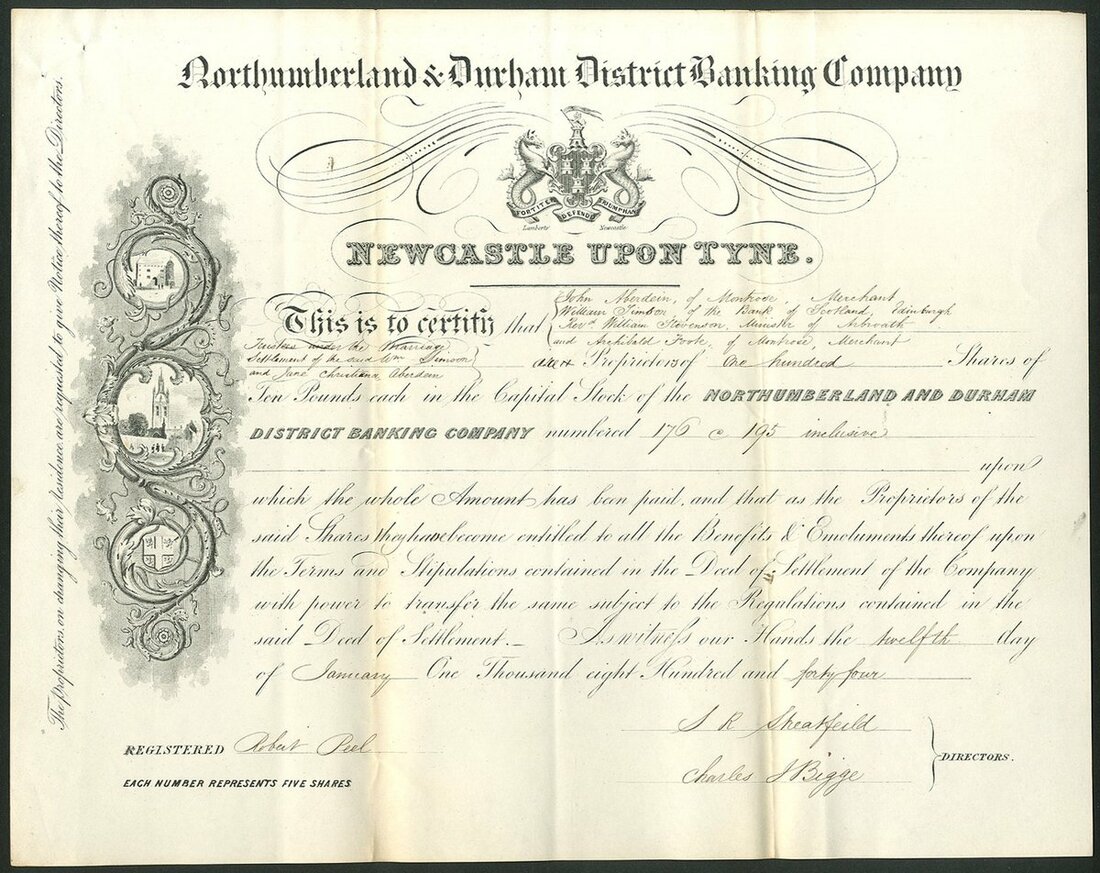 Northumberland & Durham District Banking Company
FORTITER DEFENDIT TRIUMPHANS
Lamberts Newcastle
NEWCASTLE UPON TYNE.
John Aberdein, of Montrose, Merchant
William Simson of the Bank of Scotland, Edinburgh
This is to certify that Revd. William Stevenson, Minister of Arbroath
and Archibald Foote, of Montrose, Merchant
Trustees under the Marriage
Settlement of the said Wm Simson
and Jane Christiana Aberdein are Proprietors of One hundred Shares of
Ten Pounds each in the Capital Stock of the NORTHUMBERLAND AND DURHAM
DISTRICT BANKING COMPANY numbered 176 @ 195 inclusive
upon
which the whole Amount has been paid, and that as the Proprietors of the
said Shares they have become entitled to all the Benefits & Emoluments thereof upon
the Terms and Stipulations contained in the Deed of Settlement of the Company
with power to transfer the same subject to the Regulations contained in the
said Deed of Settlement._ As witness our Hands the twelfth day
of January One Thousand eight Hundred and forty four
S R Sheatfeild
REGISTERED Robert Peel
DIRECTORS.
Charles J Bigge
EACH NUMBER REPRESENTS FIVE SHARES
The Proprietors, on changing their Residence are requested to give Notice thereof to the Directors.